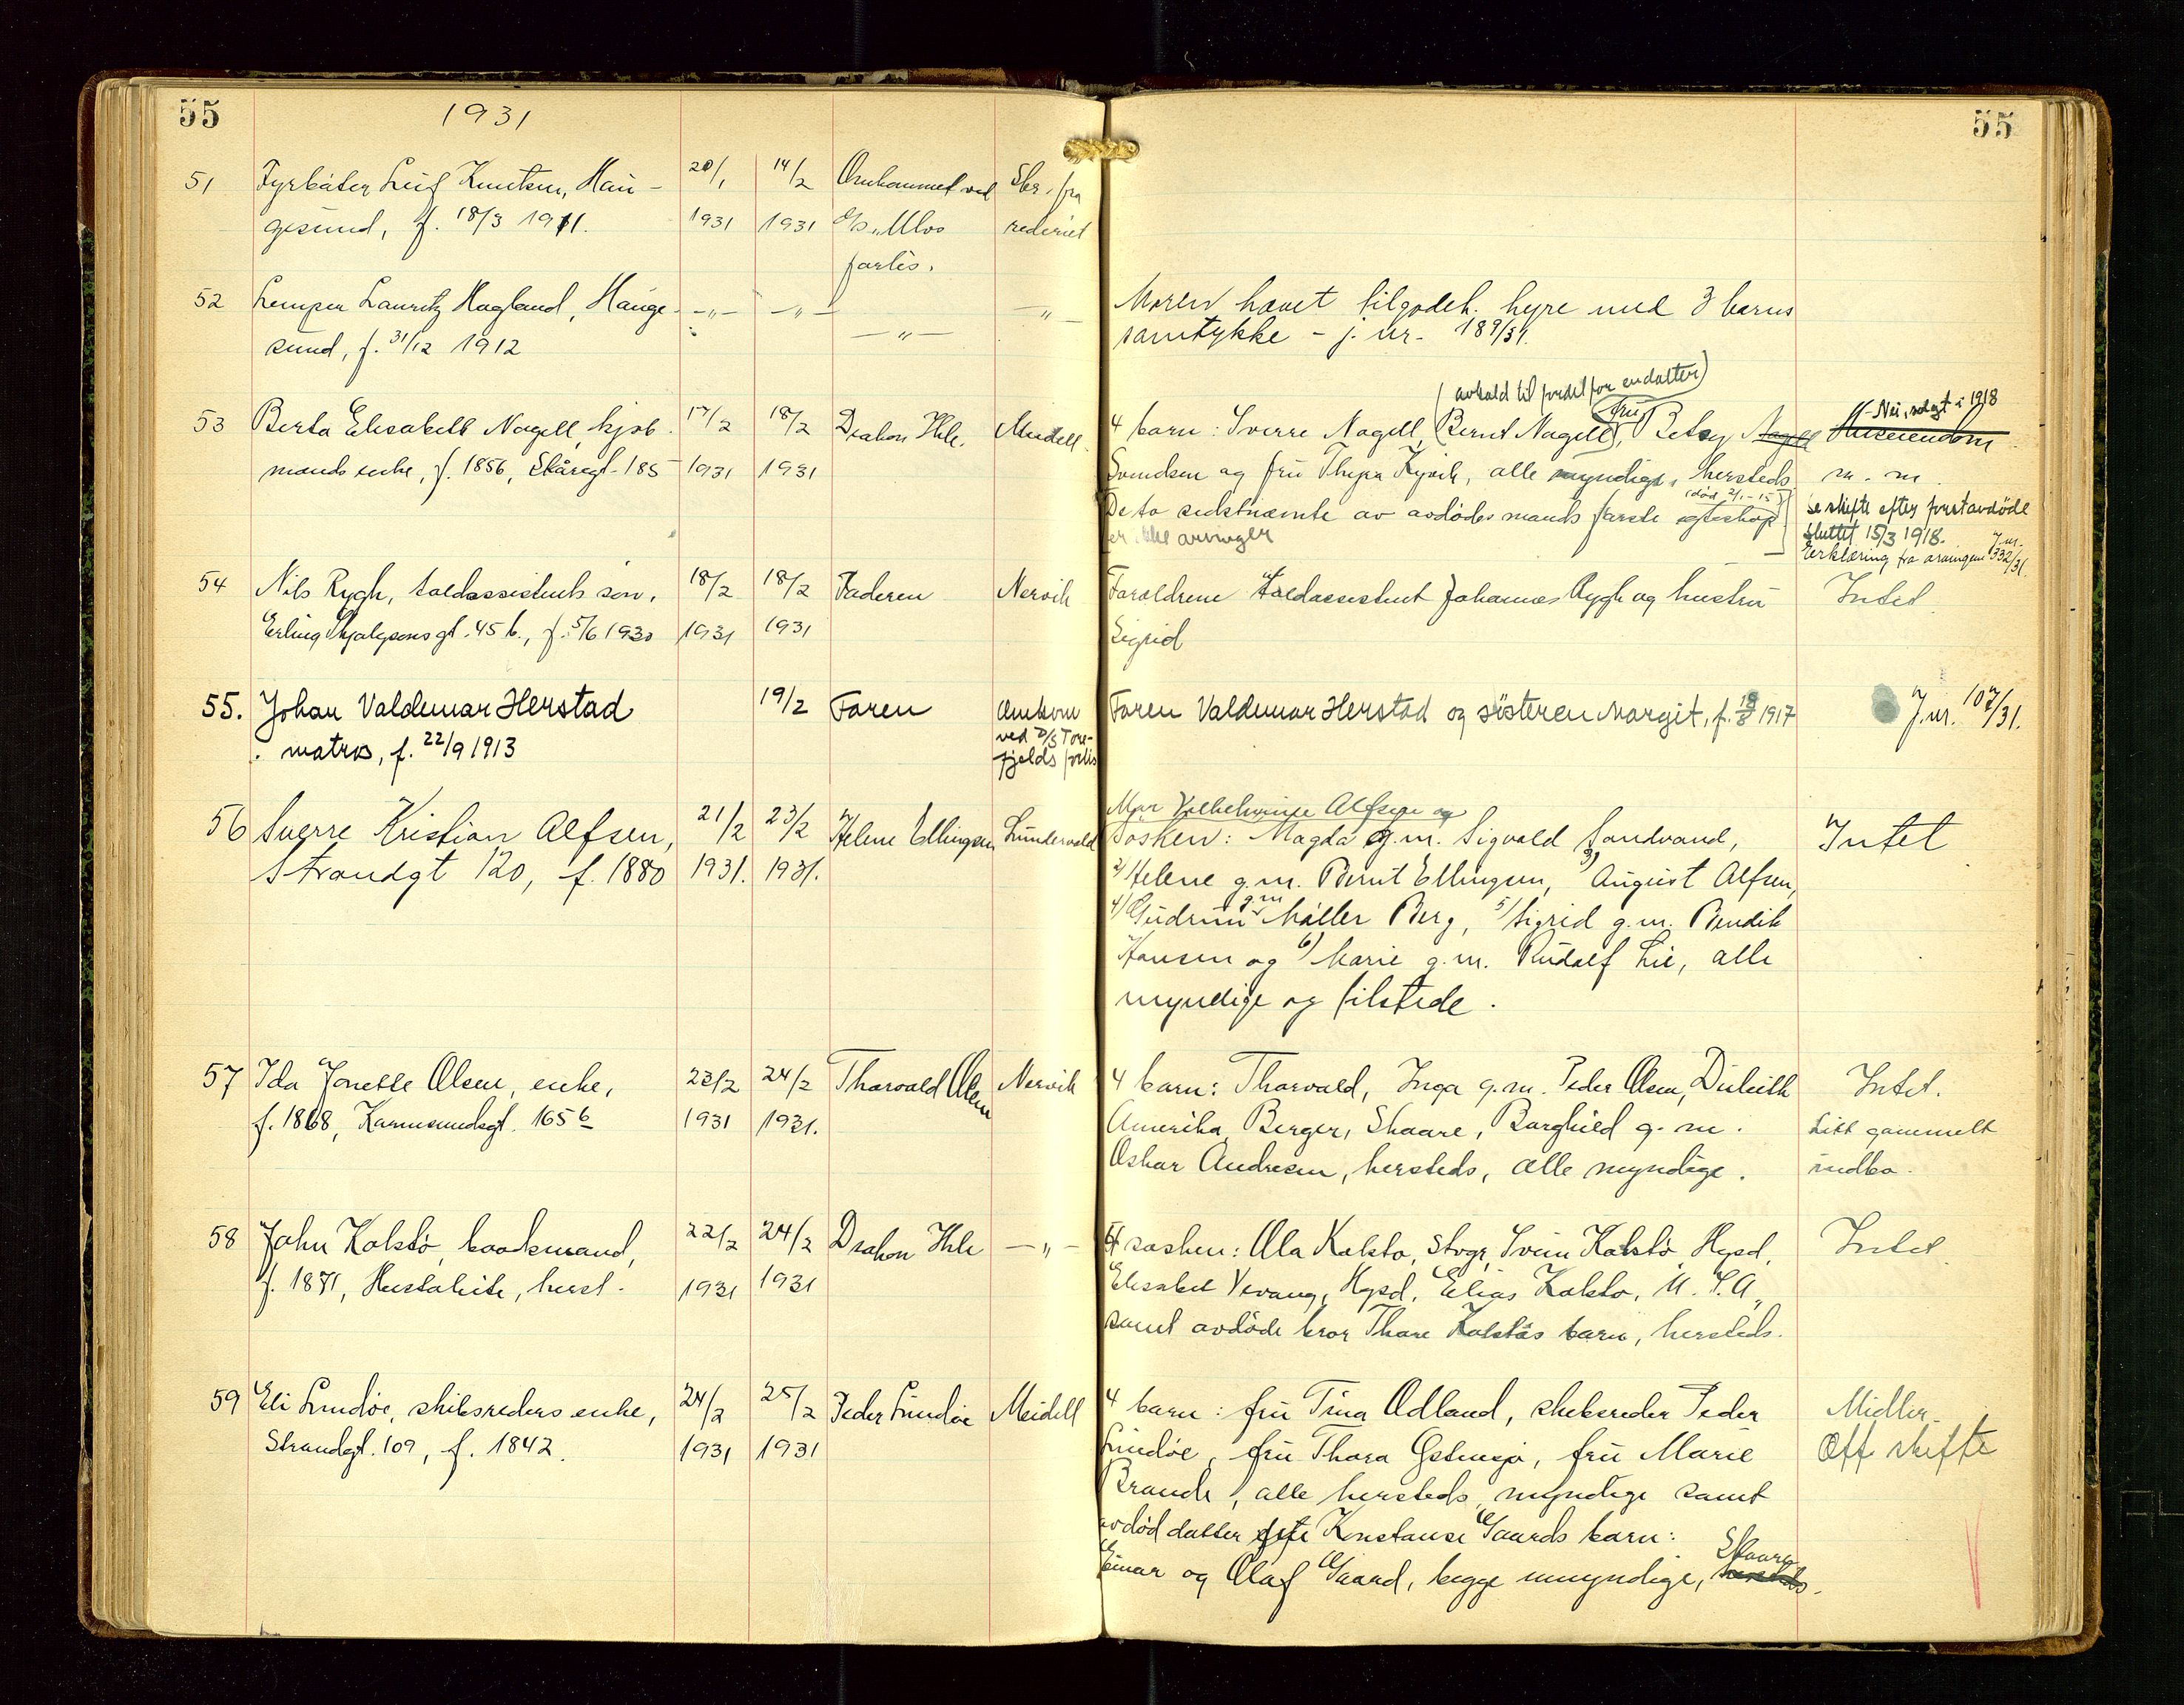 55 1931 55
51 Fyrbøter Leif Knutsen, Hau- 20/1 14/2 Omkommet ved Skr. fra
gesund, f. 18/3 1911. 1931 1931 D/S „Ulvs rederiet
forlis.
52 Lemper Lauritz Hagland, Hauge- -"- -"- -"- -"- Moren hævet tilgodeh. hyre med 3 barns
sund, f. 31/12 1912 samtykke - j. nr. 189/31.
(avkald til fordel for endatter)
53 Berta Elisabeth Nagell, kjøb- 17/2 18/2 Diakon Ihle. Meidell. 4 barn: Sverre Nagell, (Bernt Nagell), fru Betsy Nagell Huseiendom - Nei, solgt i 1918
mands enke, f. 1856, Skåregt. 185 1931 1931 Svendsen og fru Thyra Kyvik, alle myndige, hersteds. m. m.
(død 2/1-15)
De to sidstnævnte av avdødes mands første egteskap se skifte efter førstavdøde
er ikke arvinger sluttet 15/3 1918.
Erklæring fra arvingene J.nr. 332/31.
54 Nils Rygh, toldassistents søn, 18/2 18/2 Faderen Nervik Forældrene toldassistent Johannes Rygh og hustru Intet.
Erling Skjalgsons gt. 45 b., f. 5/6 1930 1931 1931 Sigrid
55. Johan Valdemar Herstad 19/2 Faren Omkom Faren Valdemar Herstad og søsteren Margit, f. 18/8 1917 J.nr. 107/31.
matros, f. 22/9 1913 ved D/S Tore-
fjelds forlis
Mor Vilhelmine Alfsen og
56 Sverre Kristian Alfsen, 21/2 23/2 Helene Ellingsen Lundevold Søsken: Magda g.m. Sigvald Sandvand, Intet
Strandgt 120, f. 1880 1931. 1931. 2/ Helene g.m. Bernt Ellingsen, 3) August Alfsen,
4) Gudrun g.m. Møller Berg, 5) Sigrid g.m. Bendik
Hansen og 6) Marie g.m. Rudolf Lie, alle
myndige og tilstede.
57 Ida Jonette Olsen, enke, 23/2 24/2 Thorvald Olsen Nervik 4 barn: Thorvald, Inga g.m. Peder Olsen, Intet.
f. 1868, Karmsundsgt. 165 b 1931 1931. Amerika, Berger, Skaare, Borghild g. m. Litt gammelt
Oskar Andresen, hersteds, alle myndige. indbo.
58 John Kolstø, baadsmand, 22/2 24/2 Diakon Ihle -"- 4 søsken: Ola Kolstø, Stvgr, Svein Kolstø, Hgsd, Intet
f. 1871, Hustahite, herst. 1931 1931 Elisabet Vevang, Hgsd, Elias Kolstø, U.S.A.,
samt avdøde bror Thore Kolstøs barn, hersteds.
59 Eli Lundøe, skibsreders enke, 24/2 25/2 Peder Lundøe Meidell 4 barn: fru Tina Odland, skibsreder Peder Midler.
Strandgt. 109, f. 1842. 1931 1931 Lundøe, fru Thora, fru Marie Off skifte
Brande, alle hersteds, myndige samt
avdød datter Konstanse Gaards barn:
Einar og Olaf Gaard, begge umyndige, hersteds. Skaare